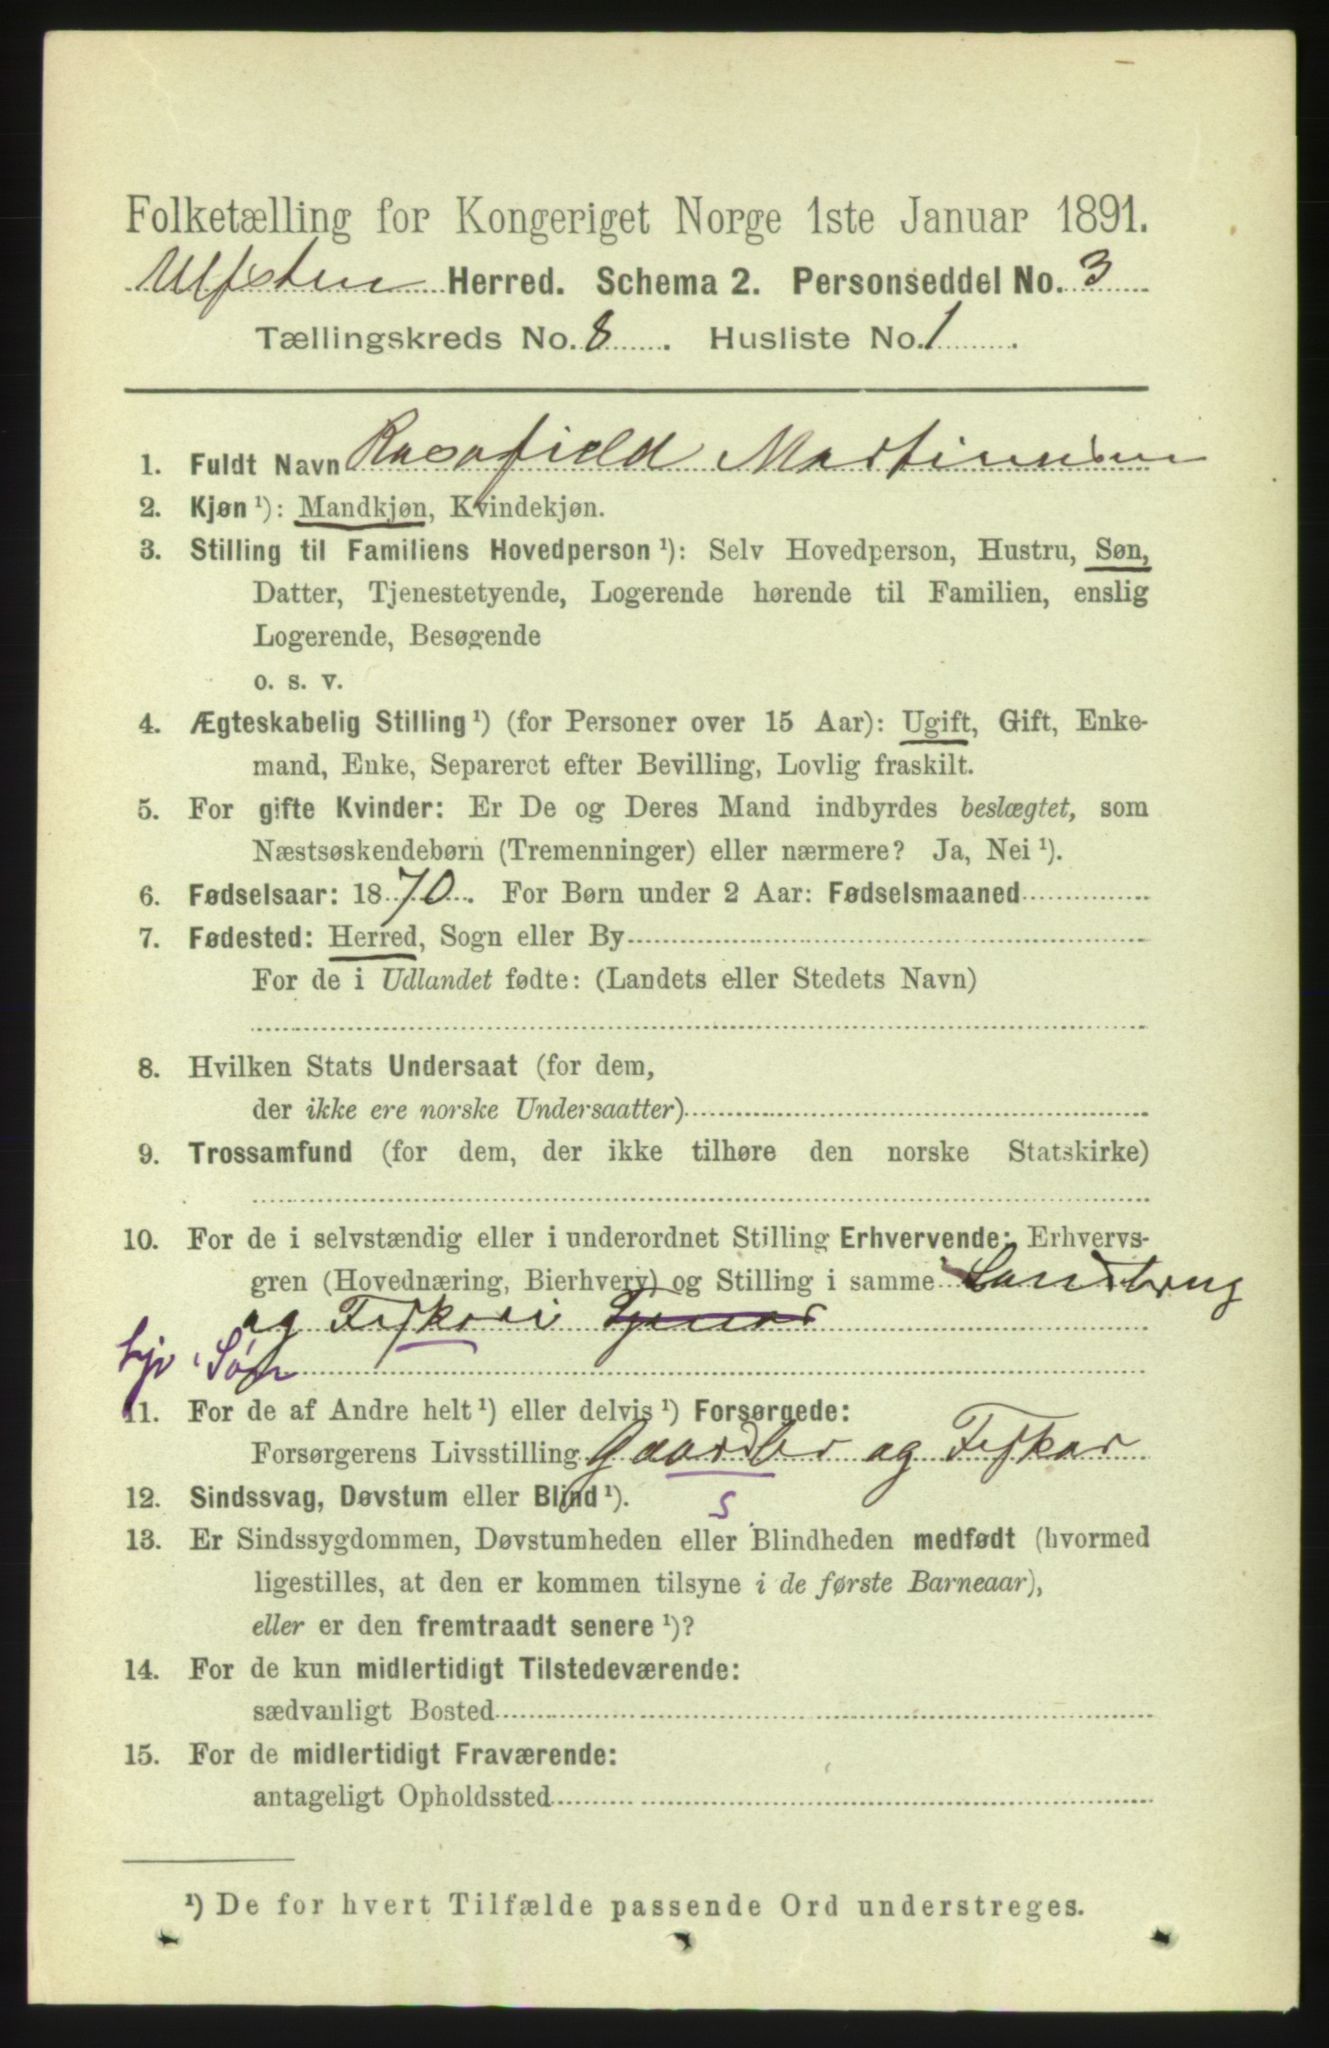 Folketælling for Kongeriget Norge 1ste Januar 1891.
Ulfsten Herred. Schema 2. Personseddel No. 3
Tællingskreds No. 8. Husliste No. 1.
1. Fuldt Navn Rasafield Martinusen
2. Kjøn ¹): Mandkjøn, Kvindekjøn.
3. Stilling til Familiens Hovedperson ¹): Selv Hovedperson, Hustru, Søn,
Datter, Tjenestetyende, Logerende hørende til Familien, enslig
Logerende, Besøgende
o. s. v.
4. Ægteskabelig Stilling ¹) (for Personer over 15 Aar): Ugift, Gift, Enke-
mand, Enke, Separeret efter Bevilling, Lovlig fraskilt.
5. For gifte Kvinder: Er De og Deres Mand indbyrdes beslægtet, som
Næstsøskendebørn (Tremenninger) eller nærmere? Ja, Nei ¹).
6. Fødselsaar: 1870. For Børn under 2 Aar: Fødselsmaaned
7. Fødested: Herred, Sogn eller By
For de i Udlandet fødte: (Landets eller Stedets Navn)
8. Hvilken Stats Undersaat (for dem,
der ikke ere norske Undersaatter)
9. Trossamfund (for dem, der ikke tilhøre den norske Statskirke)
10. For de i selvstændig eller i underordnet Stilling Erhvervende: Erhvervs-
gren (Hovednæring, Bierhverv) og Stilling i samme Landbrug
og Fiskeri
Hjv. Søn
11. For de af Andre helt ¹) eller delvis ¹) Forsørgede:
Forsørgerens Livsstilling Gaardbr og Fisker
S
12. Sindssvag, Døvstum eller Blind ¹).
13. Er Sindssygdommen, Døvstumheden eller Blindheden medfødt (hvormed
ligestilles, at den er kommen tilsyne i de første Barneaar),
eller er den fremtraadt senere ¹)?
14. For de kun midlertidigt Tilstedeværende:
sædvanligt Bosted
15. For de midlertidigt Fraværende:
antageligt Opholdssted
¹) De for hvert Tilfælde passende Ord understreges.